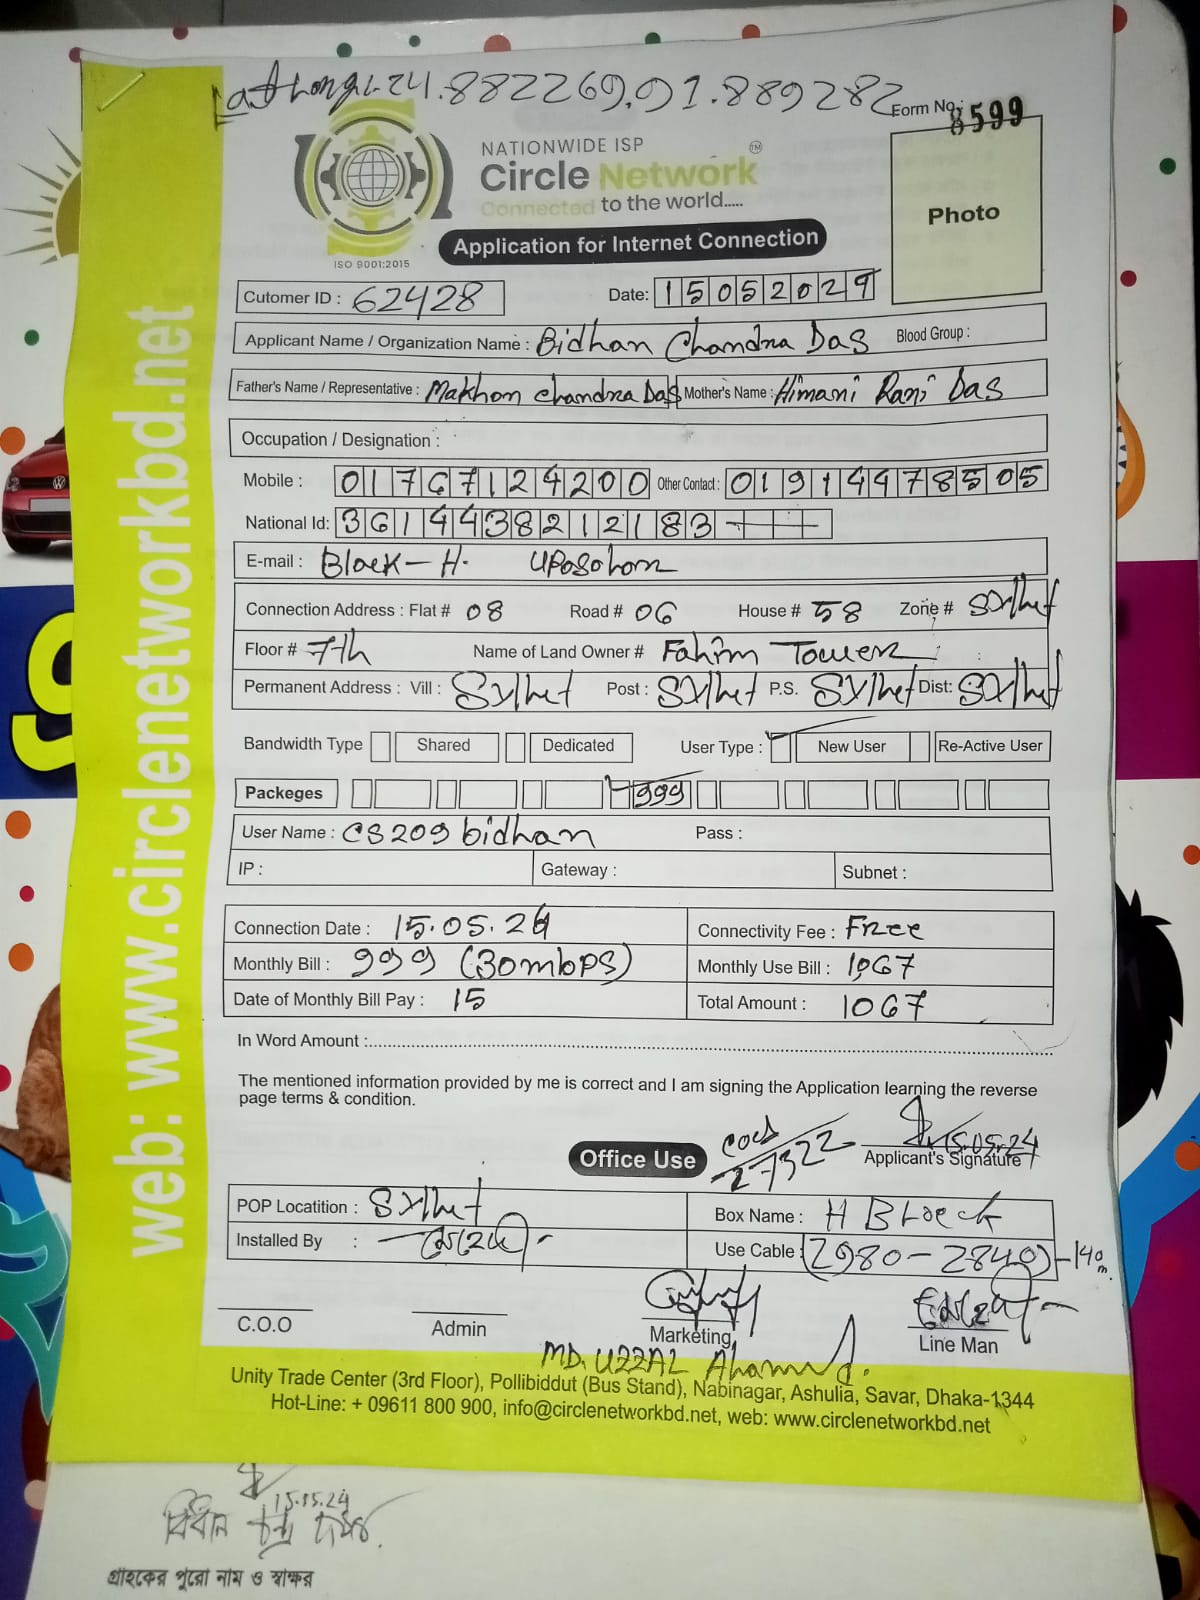 Lat Long: 24.882269, 91.889282
Form No: 8599
NATIONWIDE ISP
Circle Network TM
Connected to the world.....
ISO 9001:2015
Application for Internet Connection
Photo
Cutomer ID : 62428 Date: 15052024
Applicant Name / Organization Name : Bidhan Chandra Das Blood Group :
Father's Name / Representative : Makhon chandra Das Mother's Name : Himani Rani Das
Occupation / Designation :
Mobile : 01767124200 Other Contact : 01914478505
National Id: 3614438212183
E-mail : Block-H. Uposohor
Connection Address : Flat # 08 Road # 06 House # 58 Zone # Sylhet
Floor # 7th Name of Land Owner # Fahim Tower
Permanent Address : Vill : Sylhet Post : Sylhet P.S. Sylhet Dist: Sylhet
Bandwidth Type Shared Dedicated User Type : New User Re-Active User
Packeges 999
User Name : CS209bidhan Pass :
IP : Gateway : Subnet :
Connection Date : 15.05.24 Connectivity Fee : Free
Monthly Bill : 999 (30mbps) Monthly Use Bill : 1067
Date of Monthly Bill Pay : 15 Total Amount : 1067
In Word Amount :
The mentioned information provided by me is correct and I am signing the Application learning the reverse
page terms & condition.
15.05.24
Office Use 27322 Applicant's Signature
POP Locatition : Sylhet Box Name : H Block
Installed By : Use Cable : (2980-2840)-140m.
C.O.O Admin Marketing Line Man
MD. UZZAL Ahamed.
Unity Trade Center (3rd Floor), Pollibiddut (Bus Stand), Nabinagar, Ashulia, Savar, Dhaka-1344
Hot-Line: + 09611 800 900, info@circlenetworkbd.net, web: www.circlenetworkbd.net
web: www.circlenetworkbd.net
15.05.24
বিধান চন্দ্র দাস
গ্রাহকের পুরো নাম ও স্বাক্ষর